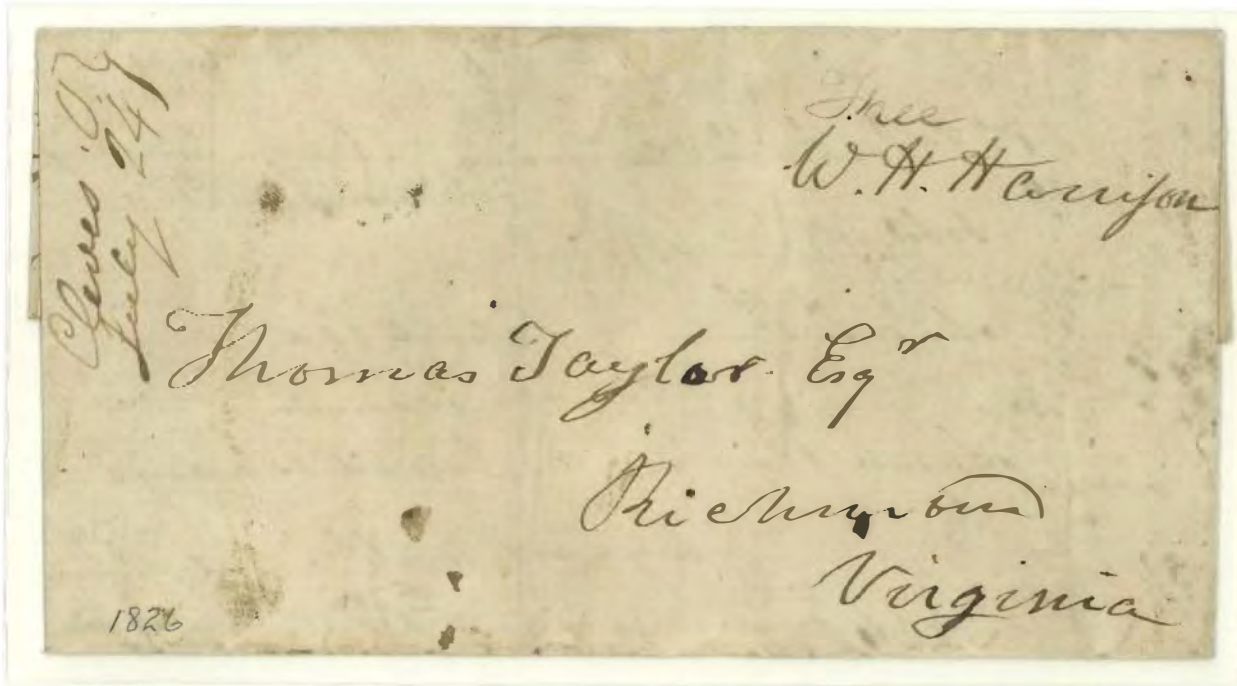 Cleves O.
July 24
Free
W. H. Harrison
Thomas Taylor Esqr
Richmond
Virginia
1826